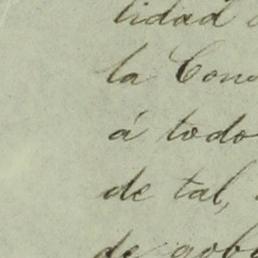 tidad
la Con
á todo
de tal,
de gob